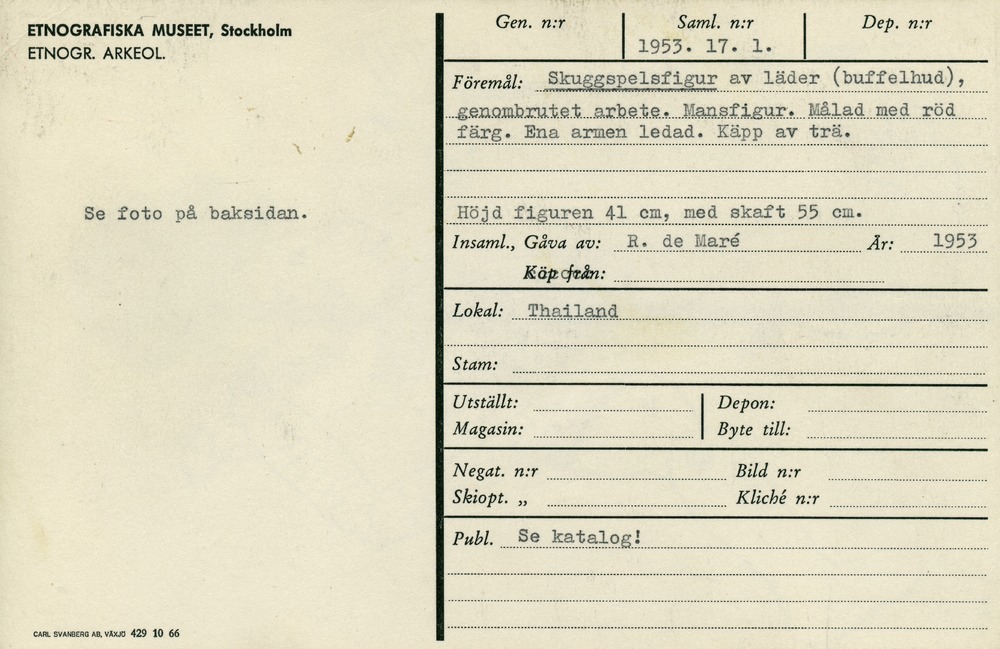 ETNOGRAFISKA MUSEET, Stockholm
ETNOGR. ARKEOL.
Se foto på baksidan.
CARL SVANBERG AB, VÄXJÖ 429 10 66
Gen. n:r
Saml. n:r
1953. 17. 1.
Dep. n:r
Föremål: Skuggspelsfigur av läder (buffelhud),
genombrutet arbete. Mansfigur. Målad med röd
färg. Ena armen ledad. Käpp av trä.
Höjd figuren 41 cm, med skaft 55 cm.
Insaml., Gåva av: R. de Maré År: 1953
Köp från:
Lokal: Thailand
Stam:
Utställt: Depon:
Magasin: Byte till:
Negat. n:r Bild n:r
Skiopt. „ Kliché n:r
Publ. Se katalog!